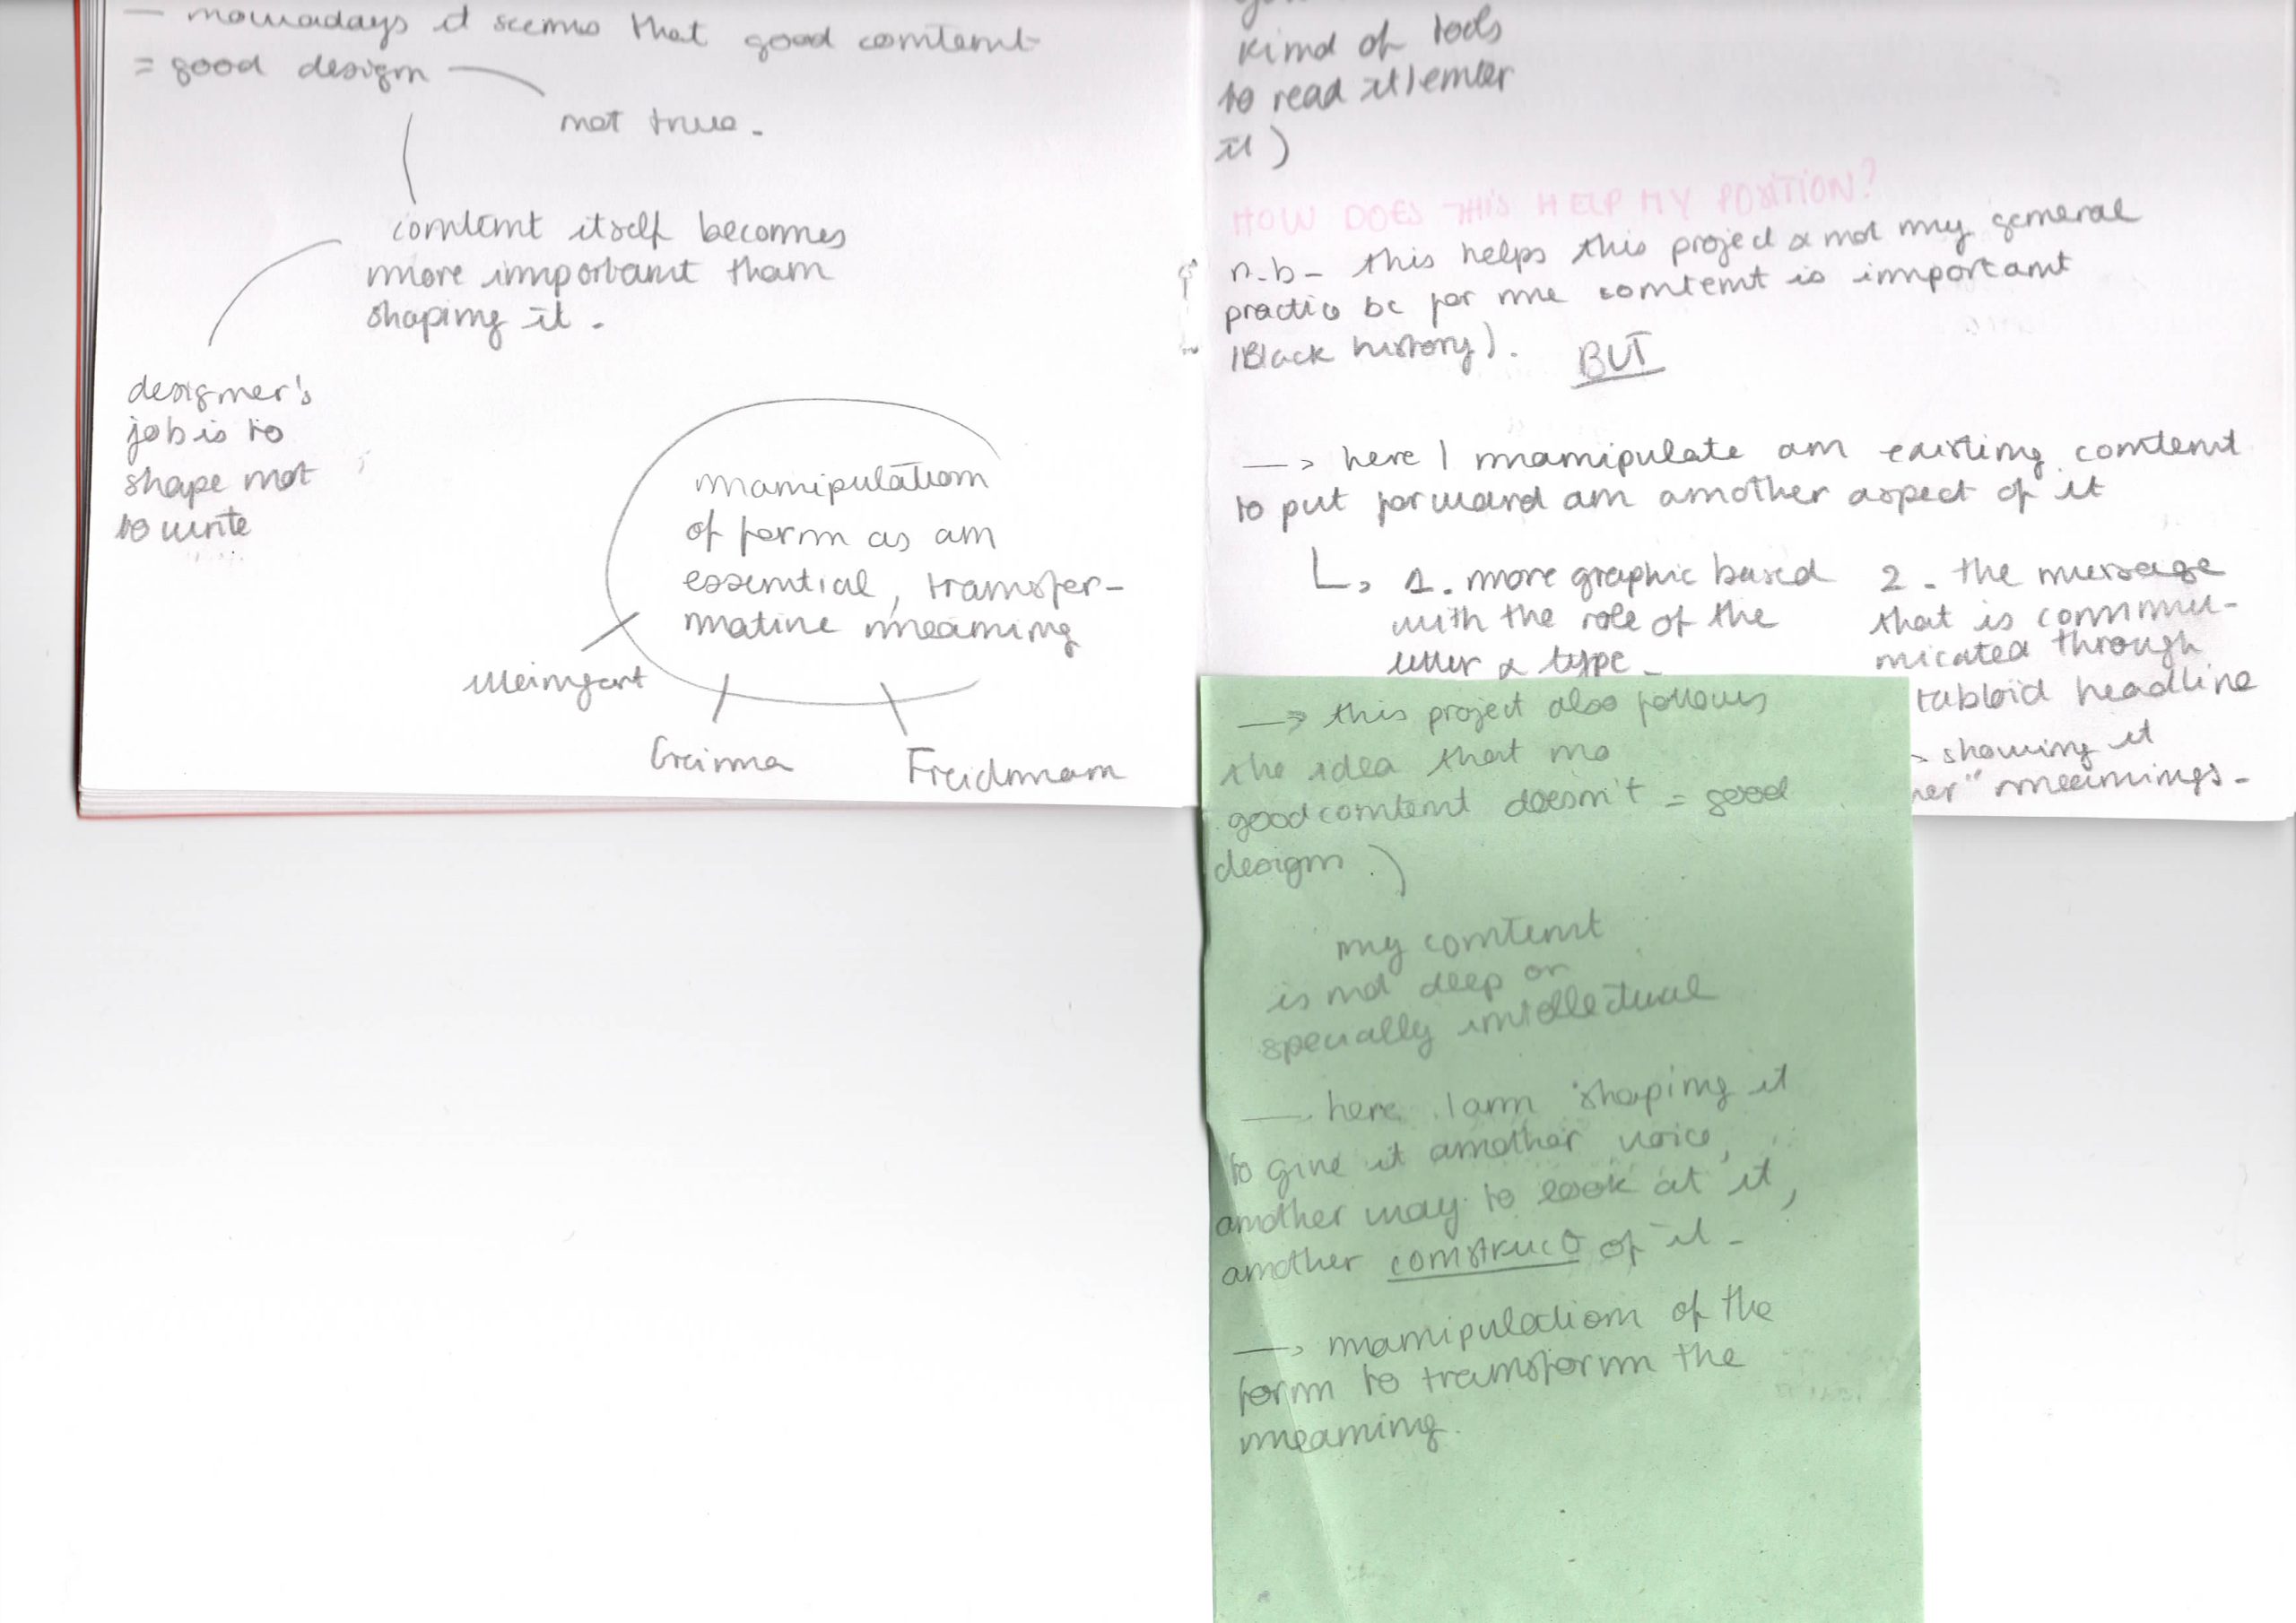 — nowadays it seems that good content
= good design —
not true.
content itself becomes
more important than
shaping it.
designer's
job is to
shape not
to write
manipulation
of form as an
essential, transfor-
mative meaning
Weingart
Greiman
Freidman
kind of tools
to read it/enter
it)
HOW DOES THIS HELP MY POSITION?
n.b - this helps this project & not my general
practice bc for me content is important
(Black history). BUT
—> here I manipulate an existing content
to put forward an another aspect of it
1. more graphic based
with the role of the
letter & type.
2. the message
that is commu-
nicated through
tabloid headline
showing it
her" meanings.
—> this project also follows
the idea that no
good content doesn't = good
design.)
my content
is not deep or
specially intellectual
— here I am shaping it
to give it another voice,
another way to look at it,
another construct of it.
—> manipulation of the
form to transform the
meaning.